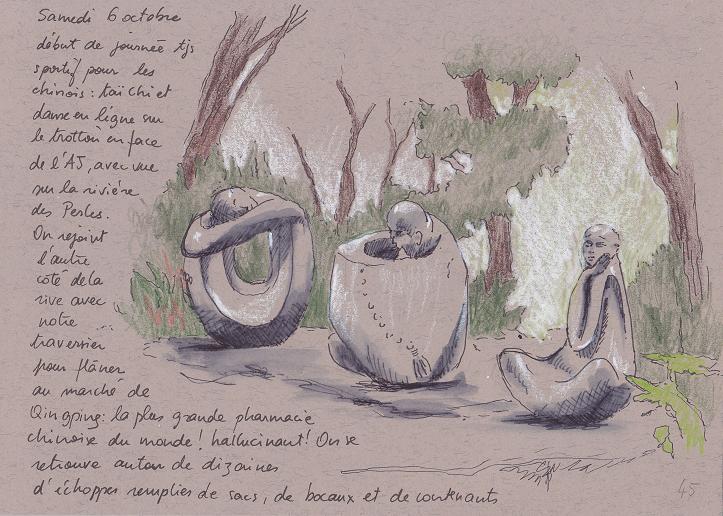 Samedi 6 octobre
début de journée tjs
sportif pour les
chinois : taï chi et
danse en ligne sur
le trottoir en face
de l'AJ, avec vue
sur la rivière
des Perles.
On rejoint
l'autre
coté de la
rive avec
notre
traversier
pour flâner
au marché de
Qingping : la plus grande pharmacie
chinoise du monde ! hallucinant ! On se
retrouve autour de dizaines
d'échoppes remplies de sacs, de bocaux et de contenants
45